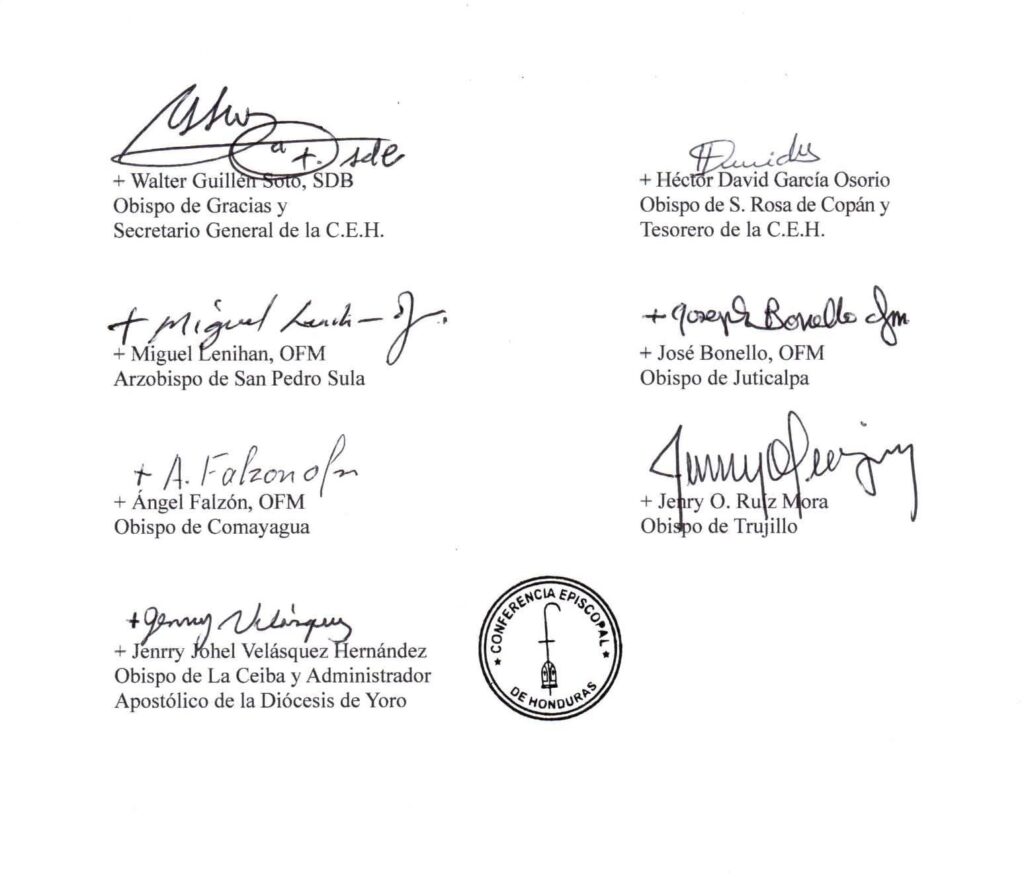 + Walter Guillén Soto, SDB
Obispo de Gracias y
Secretario General de la C.E.H.
+ Héctor David García Osorio
Obispo de S. Rosa de Copán y
Tesorero de la C.E.H.
+ Miguel
+ Miguel Lenihan, OFM
Arzobispo de San Pedro Sula
+ Joseph Bonello ofm
+ José Bonello, OFM
Obispo de Juticalpa
+ A. Falzon ofm
+ Ángel Falzón, OFM
Obispo de Comayagua
+ Jenry O. Ruíz Mora
Obispo de Trujillo
+ Jenrry Velásquez
+ Jenrry Johel Velásquez Hernández
Obispo de La Ceiba y Administrador
Apostólico de la Diócesis de Yoro
CONFERENCIA EPISCOPAL
DE HONDURAS